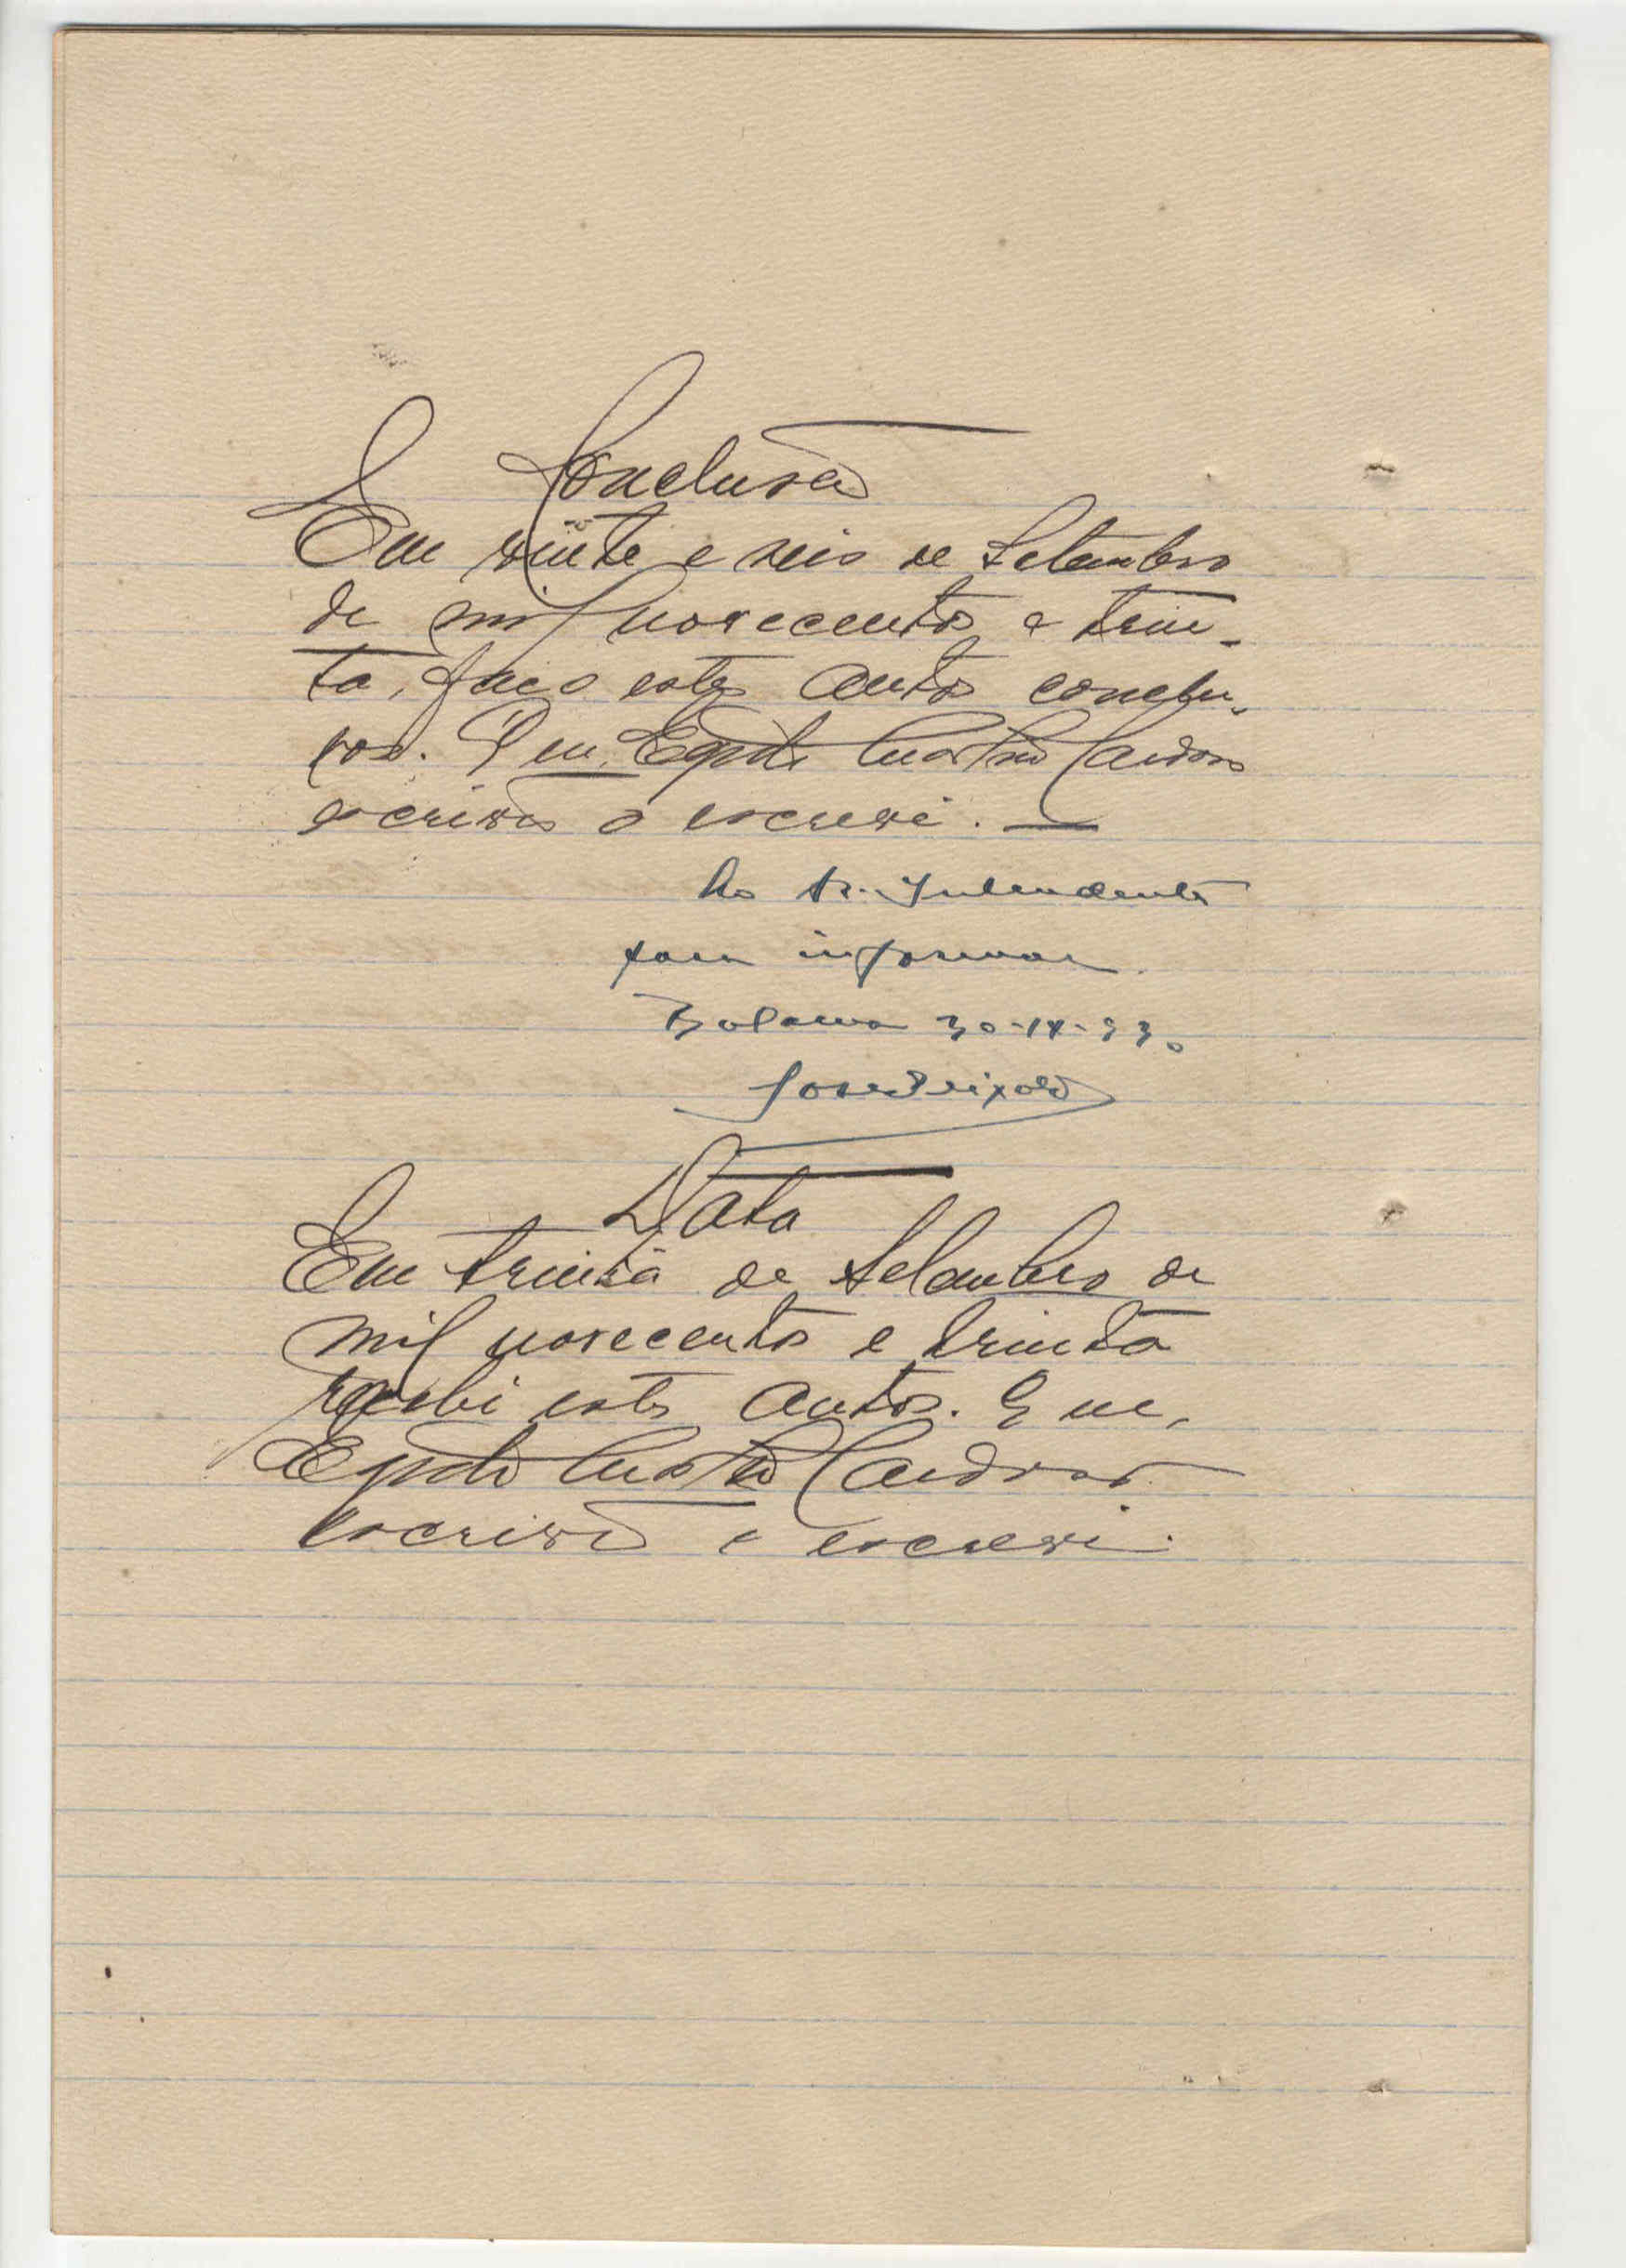 Conclusão
Em vinte e seis de Setembro
de mil novecentos e trin-
ta, faço estes autos conclu-
sos. Eu, Cardoso
escrivão o escrevi.
Ao Sr. Intendente
para informar
Bolama 30-IX-930
José Peixoto
Data
Em trinta de Setembro de
mil novecentos e trinta
recebi estes autos. Eu,
Cardoso
escrivão o escrevi.